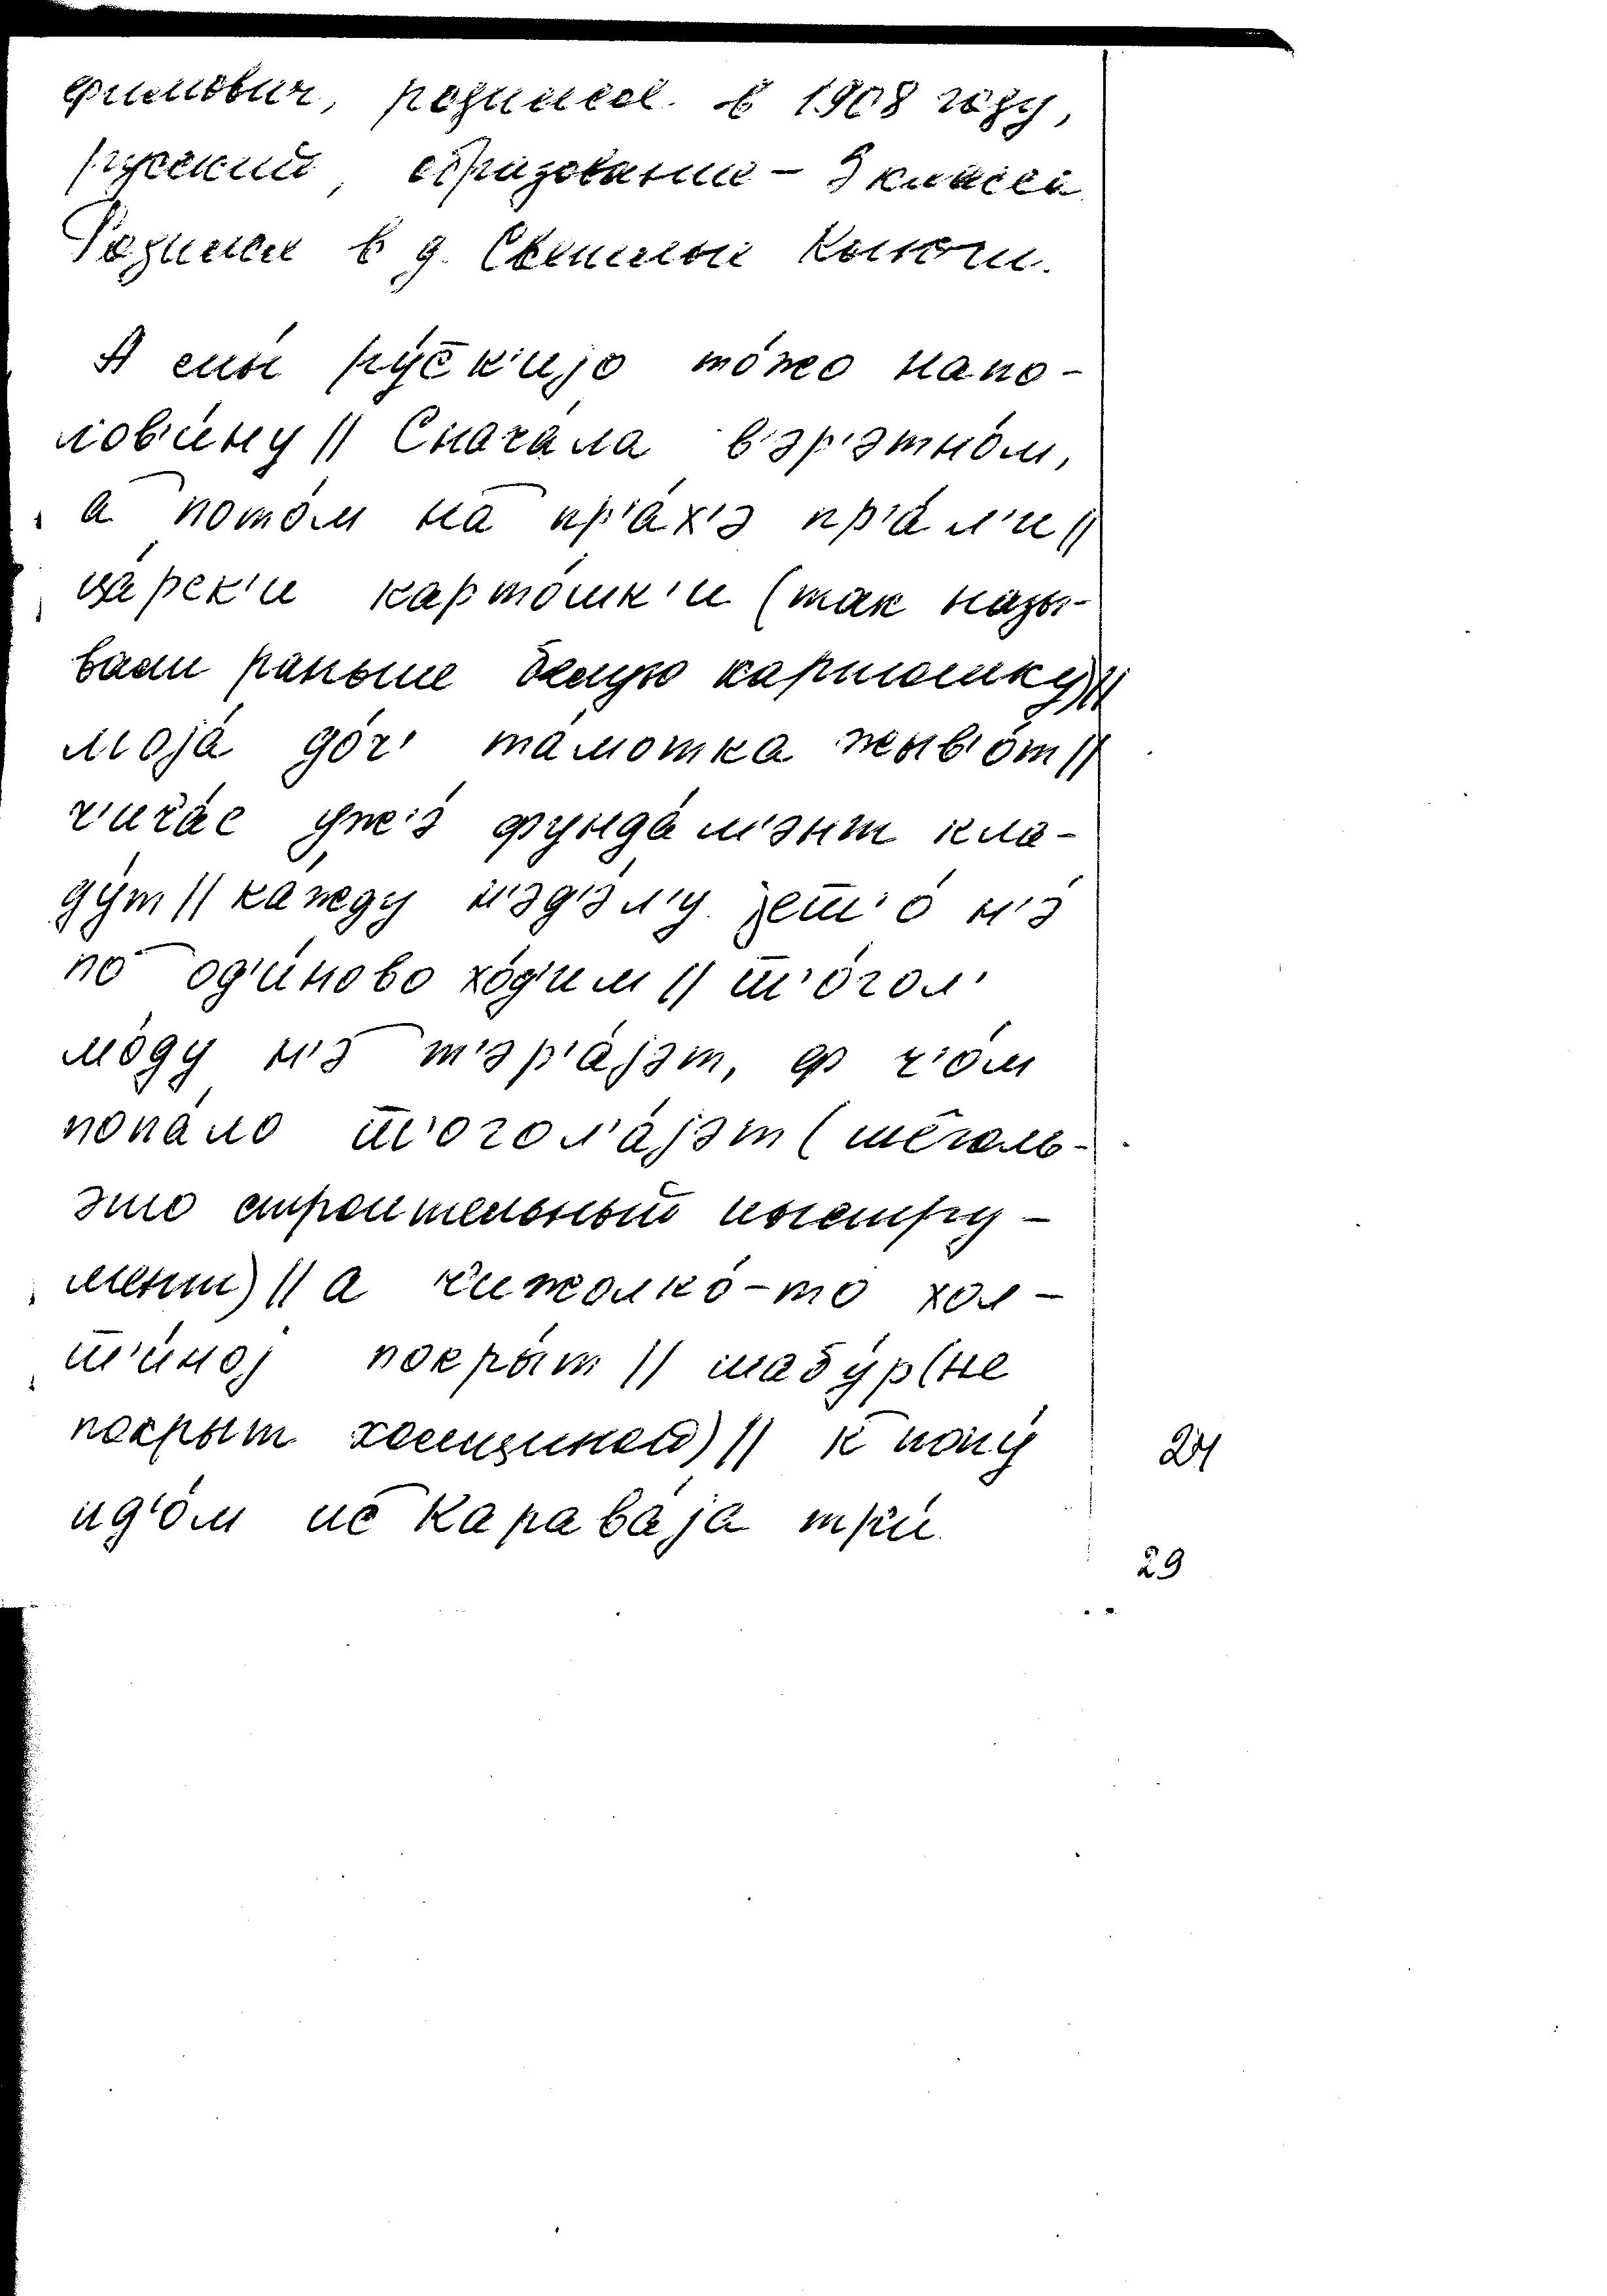 фимович, родился в 1908 году,
русский, образование – 3 класса.
Родился в д. Светлые Ключи.
А мы́ ру́с̄к'иjо то́жо напо-
лов'и́ну // Снача́ла в'эр'этно́м,
а пото́м на пр'а́х'э пр'а́л'и //
ца́рск'и карто́шк'и (так назы-
вали раньше белую картошку) //
моjа́ до́ч' та́мотка жыв'о́т //
ч'ича́с уж'э́ фунда́м'энт кла-
ду́т // ка́жду н'эд'э́л'у jеш̄'о́ н'э́
по од'и́ново хо́д'им // ш̄'о́гол'
мо́ду н'э т'эр'а́jэт, ф ч'о́м
попа́ло ш̄'огол'а́jэт (шёголь-
это строительный инстру-
мент) // а чижолко́-то хол-
ш̄'и́ноj покры́т // шабу́р (не
покрыт холщиной) // к попу́
ид'о́м ис Карава́jа тр'и́
24
29